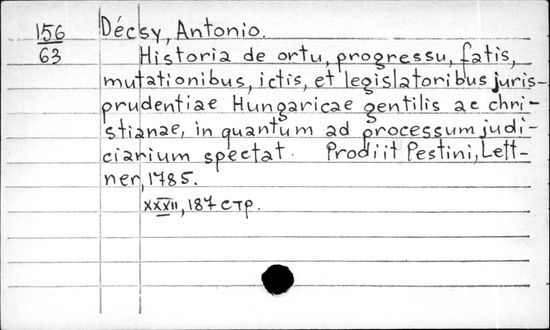 156
63
Décsy, Antonio.
Historia de ortu, progressu, fatis,
mutationibus, ictis, et legislatoribus juris-
prudentiae Hungaricae gentilis ac chri-
stianae, in quantum ad processum judi-
ciarium spectat. Prodiit Pestini, Lett-
ner, 1785.
XXXII, 187 стр.